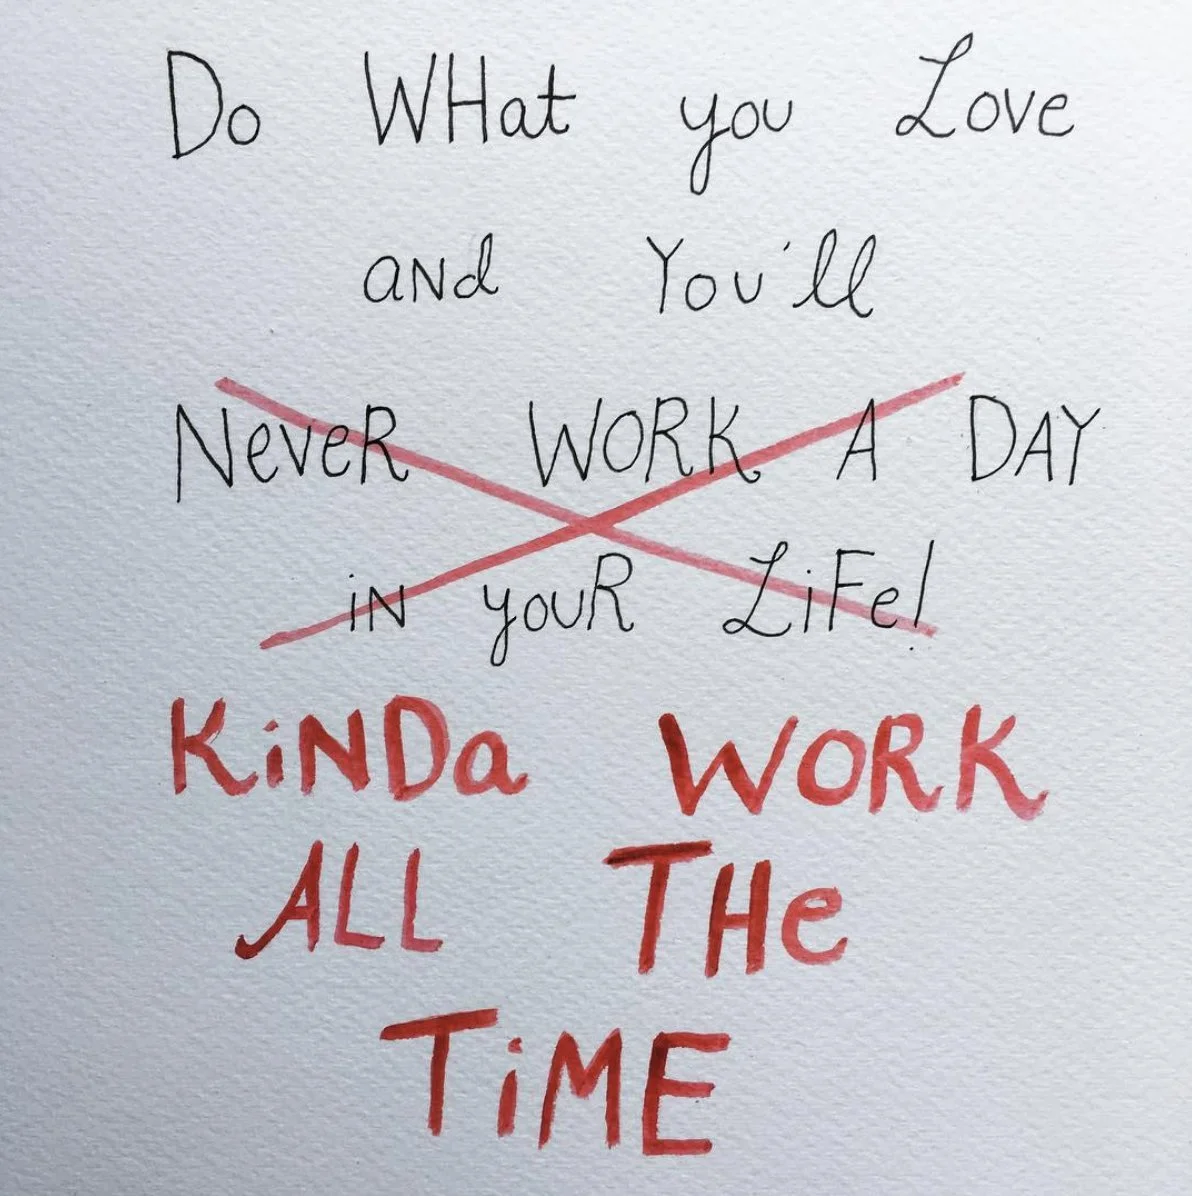 Do WHat you Love
aNd You'll
NeveR WORK A DAY
iN youR LiFe!
KiNDa WORK
ALL THe
TiME